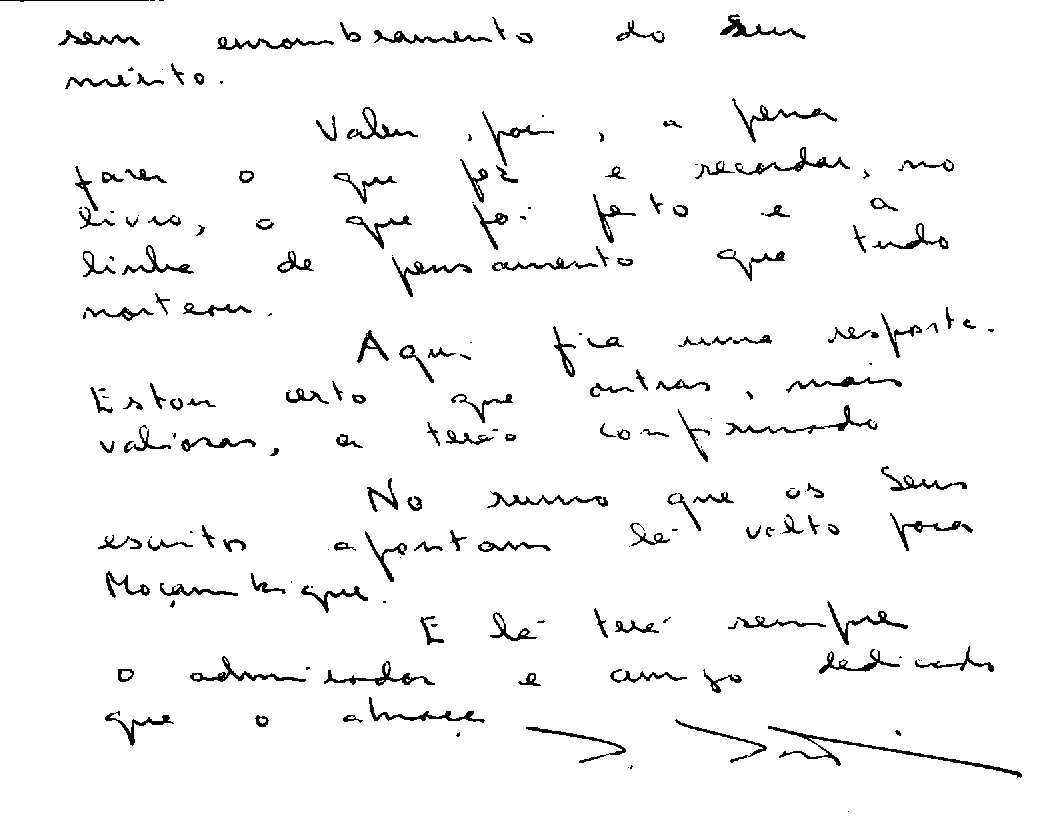 sem ensombramento do seu
mérito.
Valeu, pois, a pena
fazer o que fez e recordar, no
livro, o que foi feito e a
linha de pensamento que tudo
norteou.
Aqui fica uma resposta.
Estou certo que outras, mais
valiosas, a terão confirmado
No rumo que os seus
escritos apontam lá volto para
Moçambique.
E lá terá sempre
o admirador e amigo dedicado
que o abraça